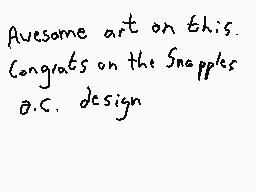 Awesome art on this.
Congrats on the Snapples
o.c. design